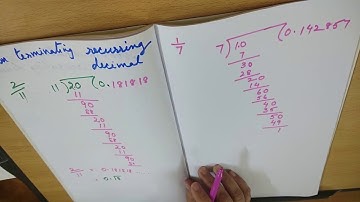 terminating recurring
decimal
2/11 11)20(0.181818
11
90
88
20
11
90
88
20
11
90
= 0.181818
= 0.18
1/7 7)10(0.142857
7
30
28
20
14
60
56
40
35
50
49
1